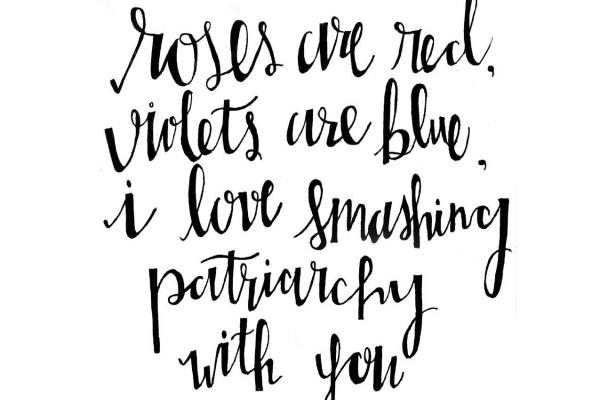 roses are red,
violets are blue,
i love smashing
patriarchy
with you